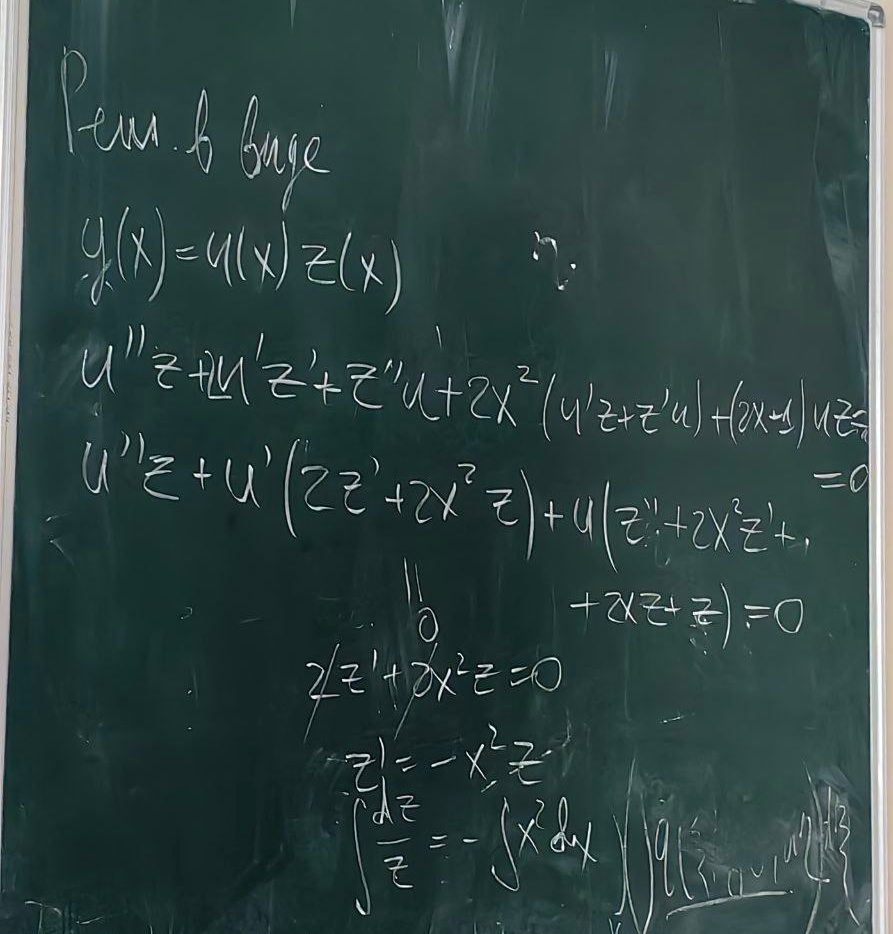 Реш. в виде
y(x)=u(x)z(x)
u''z+2u'z'+z''u+2x²(u'z+z'u)+(2x+1)uz=
=0
u''z+u'(2z'+2x²z)+u(z''+2x²z'+
+2xz+z)=0
||
0
2z'+2x²z=0
z'=-x²z
∫dz/z=-∫x²dx